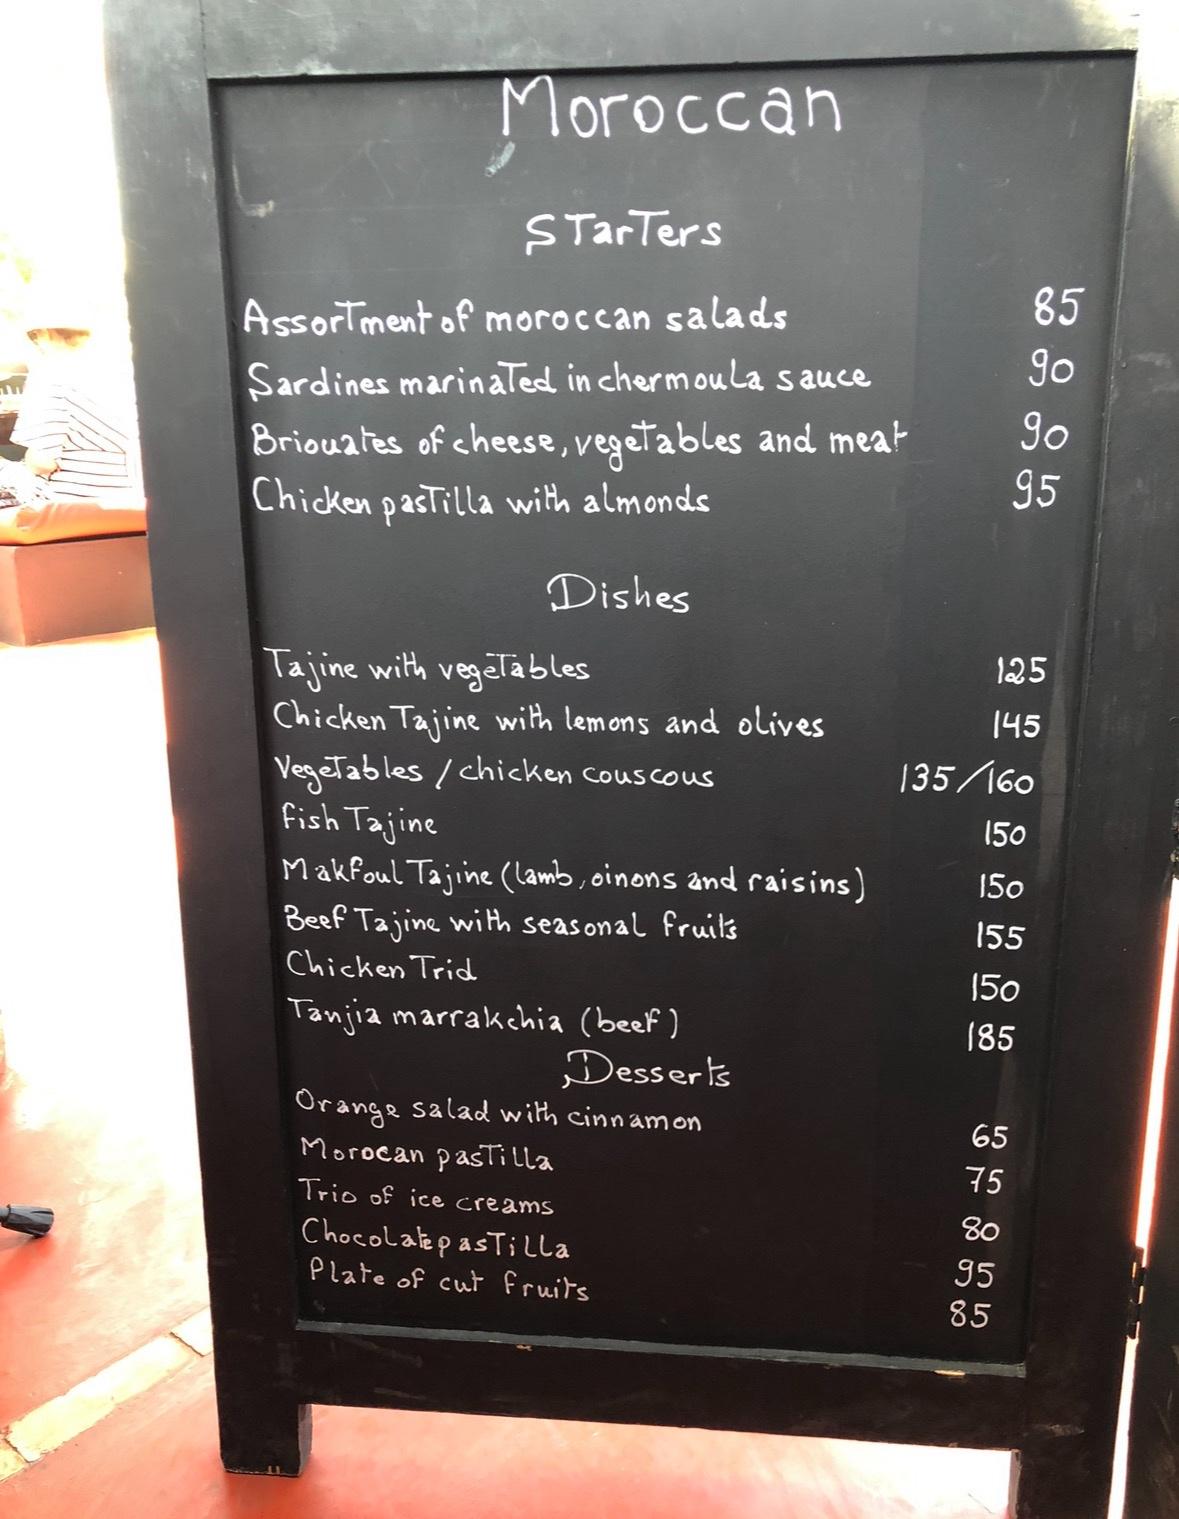 Moroccan
Starters
Assortment of moroccan salads 85
Sardines marinated in chermoula sauce 90
Briouates of cheese, vegetables and meat 90
Chicken pastilla with almonds 95
Dishes
Tajine with vegetables 125
Chicken Tajine with lemons and olives 145
Vegetables / chicken couscous 135/160
fish Tajine 150
Makfoul Tajine (lamb, oinons and raisins) 150
Beef Tajine with seasonal fruits 155
Chicken Trid 150
Tanjia marrakchia (beef) 185
Desserts
Orange salad with cinnamon 65
Morocan pastilla 75
Trio of ice creams 80
Chocolate pastilla 95
Plate of cut fruits 85